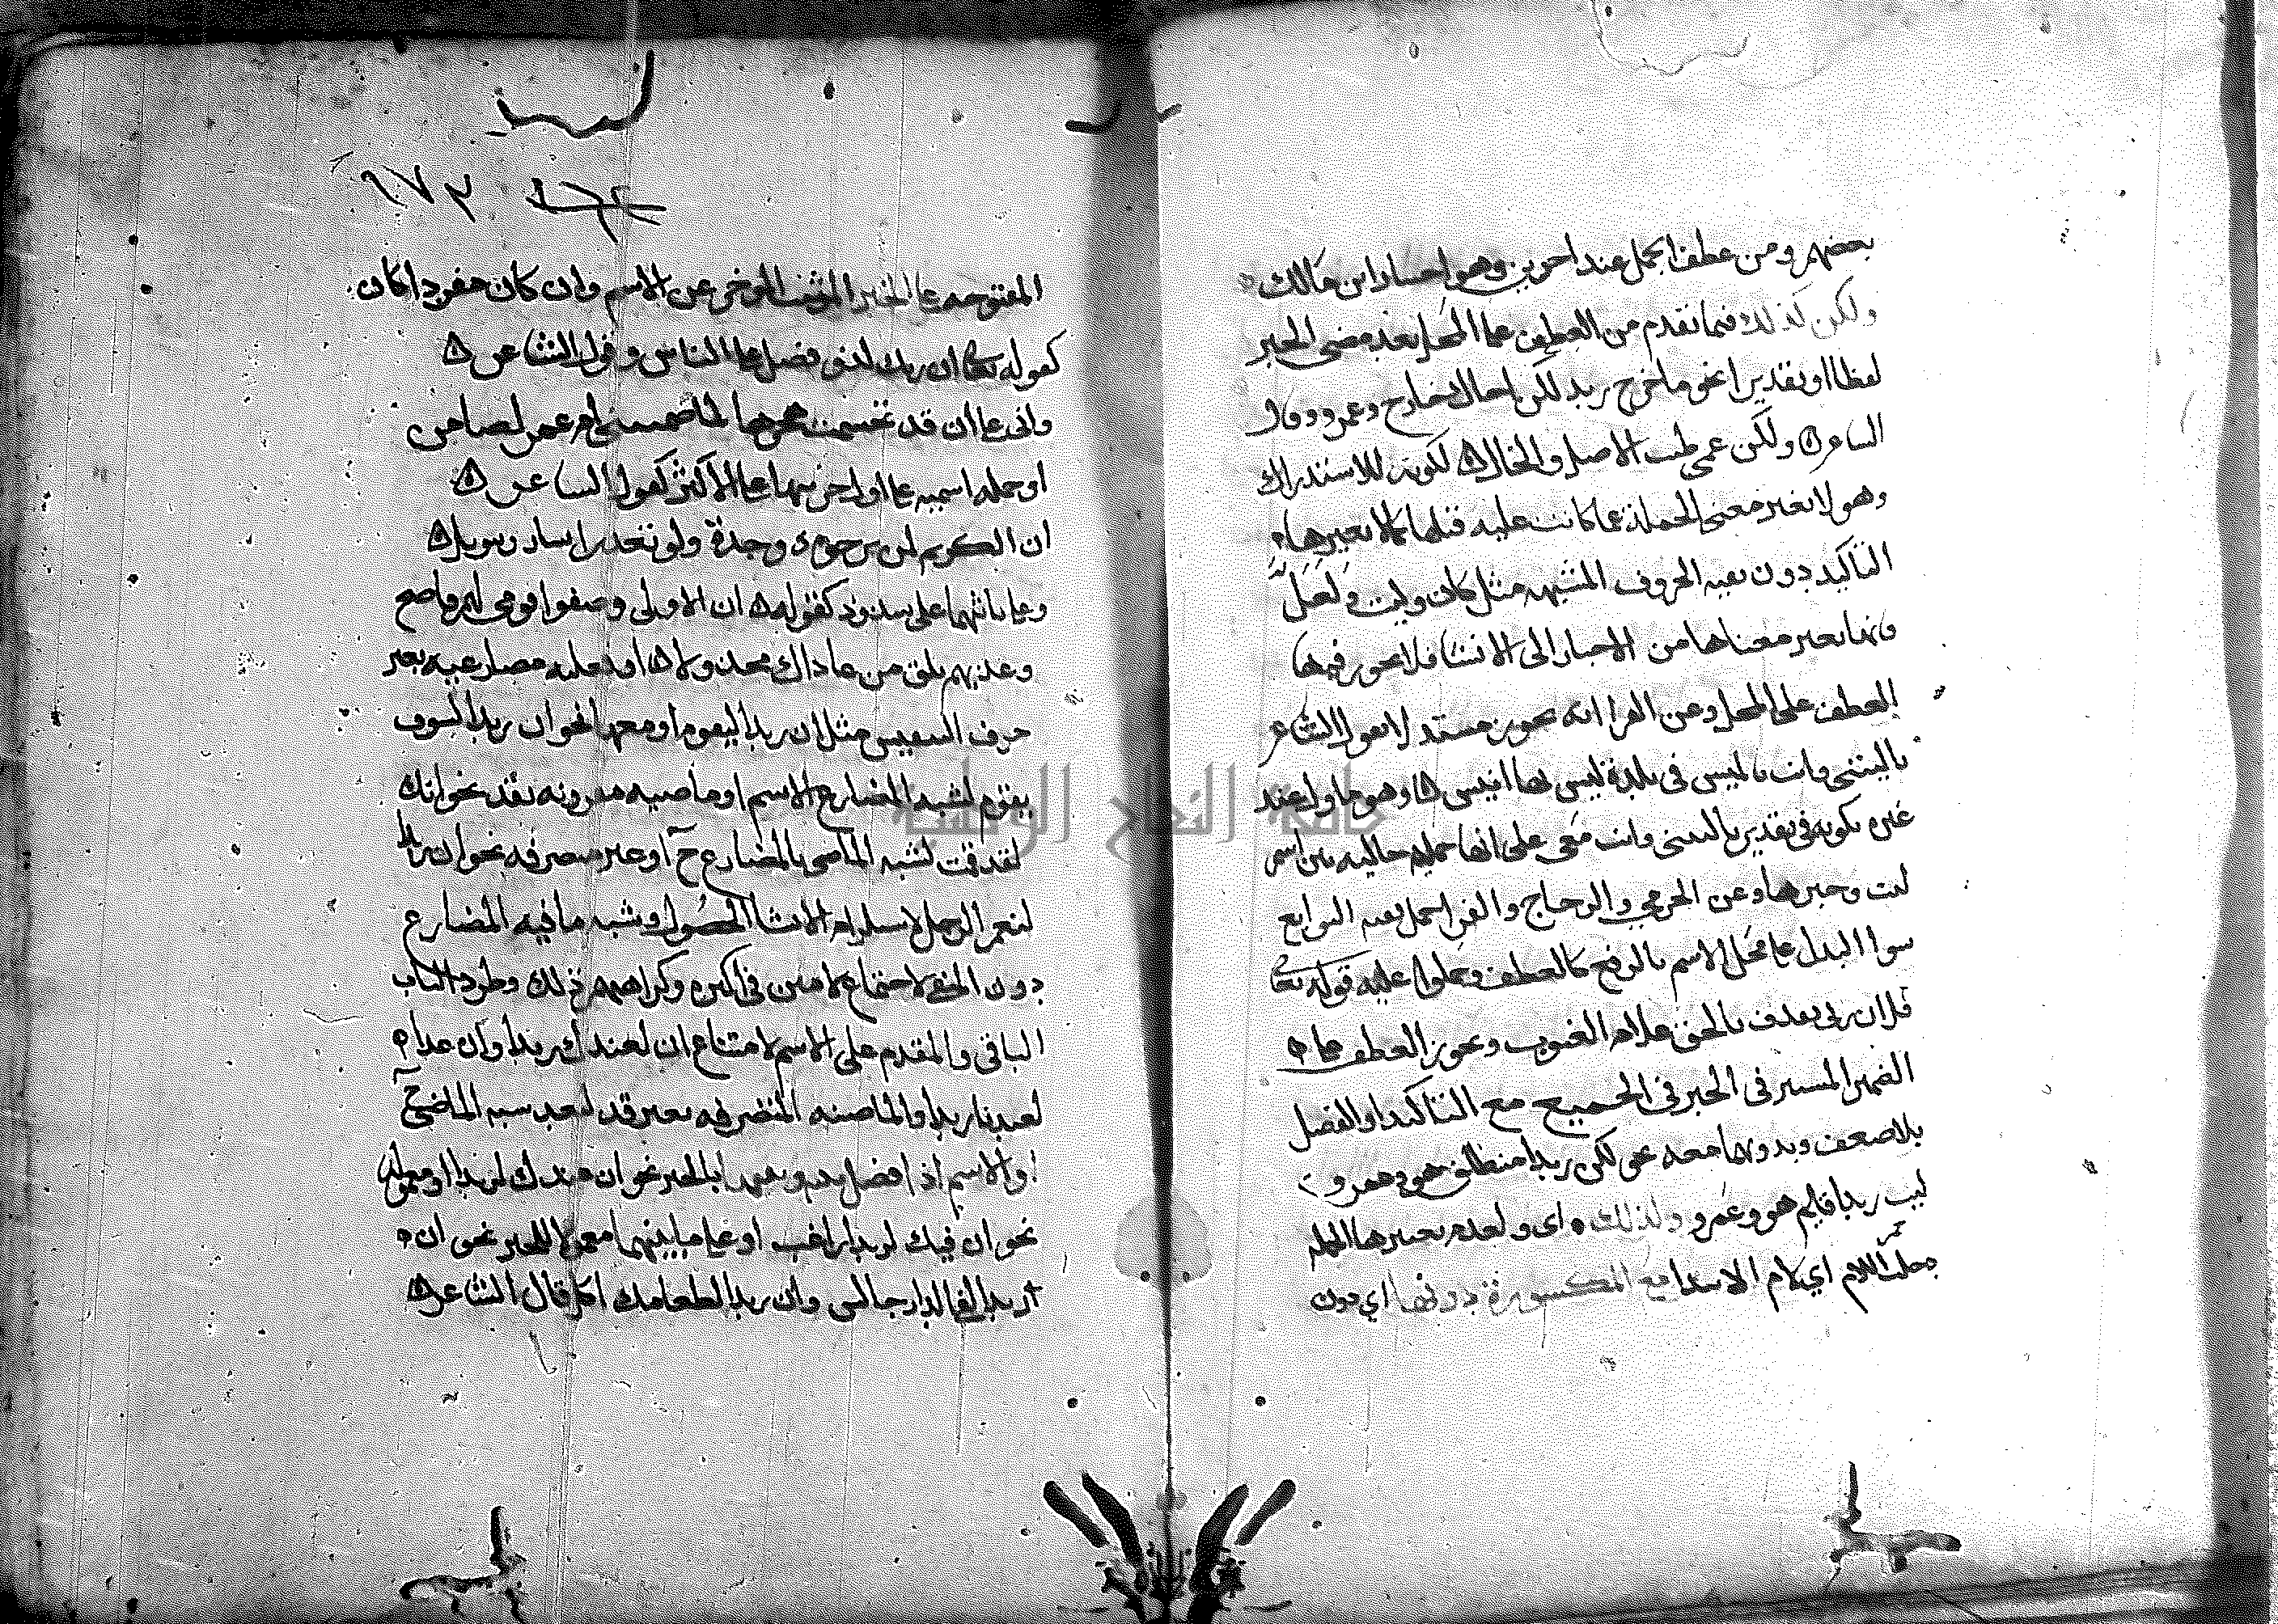 بعضهم ومن عطف الجمل عند اخرين وهو اختيار ابن مالك
ولكن كذلك فيما تقدم من العطف على المحل بعد مضى الخبر
لفظا او تقديرا نحو ما خرج زيد لكن اخاك خارج وعمرو وقال
الشاعر ولكن عمي طيب الاصل والخال لكونه للاستدراك
وهو لا يغير معنى الجملة عما كانت عليه قبلها كما لا يغيرها
التاكيد دون بقيه الحروف المشبهه مثل كان وليت ولعل
فانها تغير معناها من الاخبار الى الانشا فلا يجوز فيها
العطف على المحل وعن الفرا انه يجوز مستدلا بقول الشاعر
يا ليتني وانت يا لميس في بلدة ليس بها انيس وهو ماول عند
غيره بكونه في تقدير يا ليتني وانت معي على انها جملة حاليه بين اسم
ليت وخبرها وعن الجرمي والزجاج والفرا حمل بقيه التوابع
سوا البدل على محل الاسم بالرفع كالعطف وحملوا عليه قوله تعالى
قل ان ربي يقذف بالحق علام الغيوب ويجوز العطف على
الضمير المستتر في الخبر في الجميع مع التاكيد او الفصل
بلا ضعف وبدونهما معه نحو لكن زيدا منطلق هو وعمرو
ليت زيدا قايم هو وعمرو ولذلك اي ولعدم تغييرها الجملة
دخلت اللام اي لام الابتدا مع المكسورة دونها اي دون
٩٧٣
المفتوحه على الخبر المثبت الموخر عن الاسم وان كان مفردا كان
كقوله تعالى ان ربك لذو فضل على الناس وقول الشاعر
واني على ان قد تجشمت هجرها لما ضمنتني ام عمرو لضامن
او جمله اسميه على اول جزئيها على الاكثر كقول الشاعر
ان الكريم لمن يرجوه ذو جدة ولو تعذر ايسار وتنويل
وعلى ثانيهما على شذوذ كقوله ان الاولى وصفوا قومي لهم
من عاداك مخذولا او فعليه مضارعيه بغير
حرف التنفيس مثل ان زيدا ليقوم او معها نحو ان زيدا لسوف
يقوم لشبه المضارع الاسم او ماضيه مقرونه بقد نحو انك
لقد قمت لشبه الماضي بالمضارع ح او غير متصرفه نحو ان زيدا
لنعم الرجل لاستلزامه الانشا الحصول وشبه ما فيه المضارع
دون المنفي لاجتماع لامين في اكثره وكراهتهم ذلك وطرد الباب
الباقي والمقدم على الاسم لامتناع ان لعندك زيدا وان غدا
لعندنا زيدا والماضيه المتصرفه بغير قد لبعد شبه الماضي ح
او الاسم اذا فصل بينه وبينها بالخبر نحو ان عندك لزيدا او معموله
نحو ان فيك لزيدا راغب او على ما بينهما معمولا للخبر نحو ان
زيدا لفي الدار جالس وان زيدا لطعامك اكل قال الشاعر